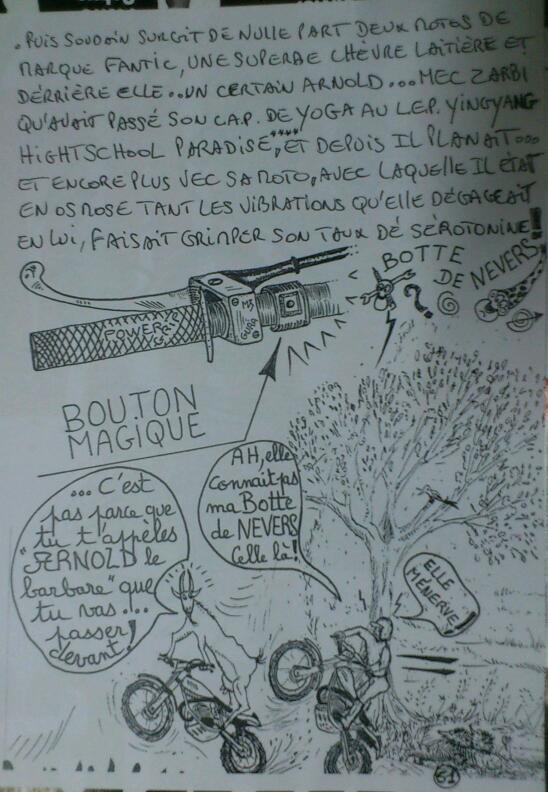 . PUIS SOUDAIN SURGIT DE NULLE PART DEUX MOTOS DE
MARQUE FANTIC, UNE SUPERBE CHÈVRE LAITIÈRE ET
DÉRRIÈRE ELLE.. UN CERTAIN ARNOLD... MEC ZARBI
QU'AVAIT PASSÉ SON C.A.P. DE YOGA AU L.E.P. YINGYANG
HIGHTSCHOOL PARADISE, ET DEPUIS IL PLANAIT...
ET ENCORE PLUS VEC SA MOTO, AVEC LAQUELLE IL ÉTAIT
EN OSMOSE TANT LES VIBRATIONS QU'ELLE DÉGAGEAIT
EN LUI, FAISAIT GRIMPER SON TAUX DE SÈROTONINE!
BOTTE
DE NEVERS!
?
POWER
BOUTON
MAGIQUE
AH, elle
connait pas
ma Botte
de NEVERS
Celle là!
... C'est
pas parce que
tu t'appèles
"ARNOLD le
barbare" que
tu vas ...
passer
devant!
ELLE
M'ÉNERVE!
61